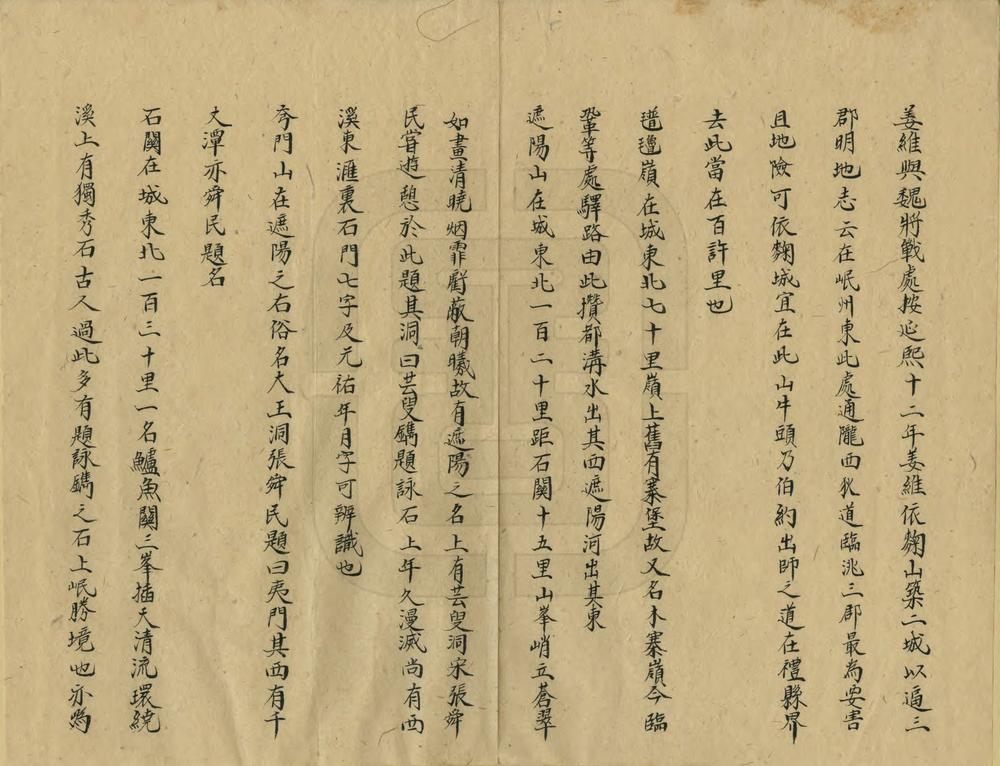 姜維與魏將戰處按延熙十二年姜維依麴山築二城以逼三
郡明地志云在岷州東此處通隴西狄道臨洮三郡最為要害
且地險可依麴城宜在此山牛頭乃伯約出師之道在禮縣界
去此當在百許里也
嶺在城東北七十里嶺上舊有寨堡故又名木寨嶺今臨
鞏等處驛路由此攢都溝水出其西遮陽河出其東
遮陽山在城東北一百二十里距石關十五里山峯峭立蒼翠
如畫清曉烟霏霨蔽朝曦故有遮陽之名上有芸叟洞宋張舜
民嘗遊憩於此題其洞曰芸叟鐫題詠石上年久漫滅尚有西
溪東滙裏石門七字及元祐年月字可辨識也
夸門山在遮陽之右俗名大王洞張舜民題曰夷門其西有千
丈潭亦舜民題名
石關在城東北一百三十里一名鱸魚關三峯插天清流環繞
溪上有獨秀石古人過此多有題詠鐫之石上岷勝境也亦為